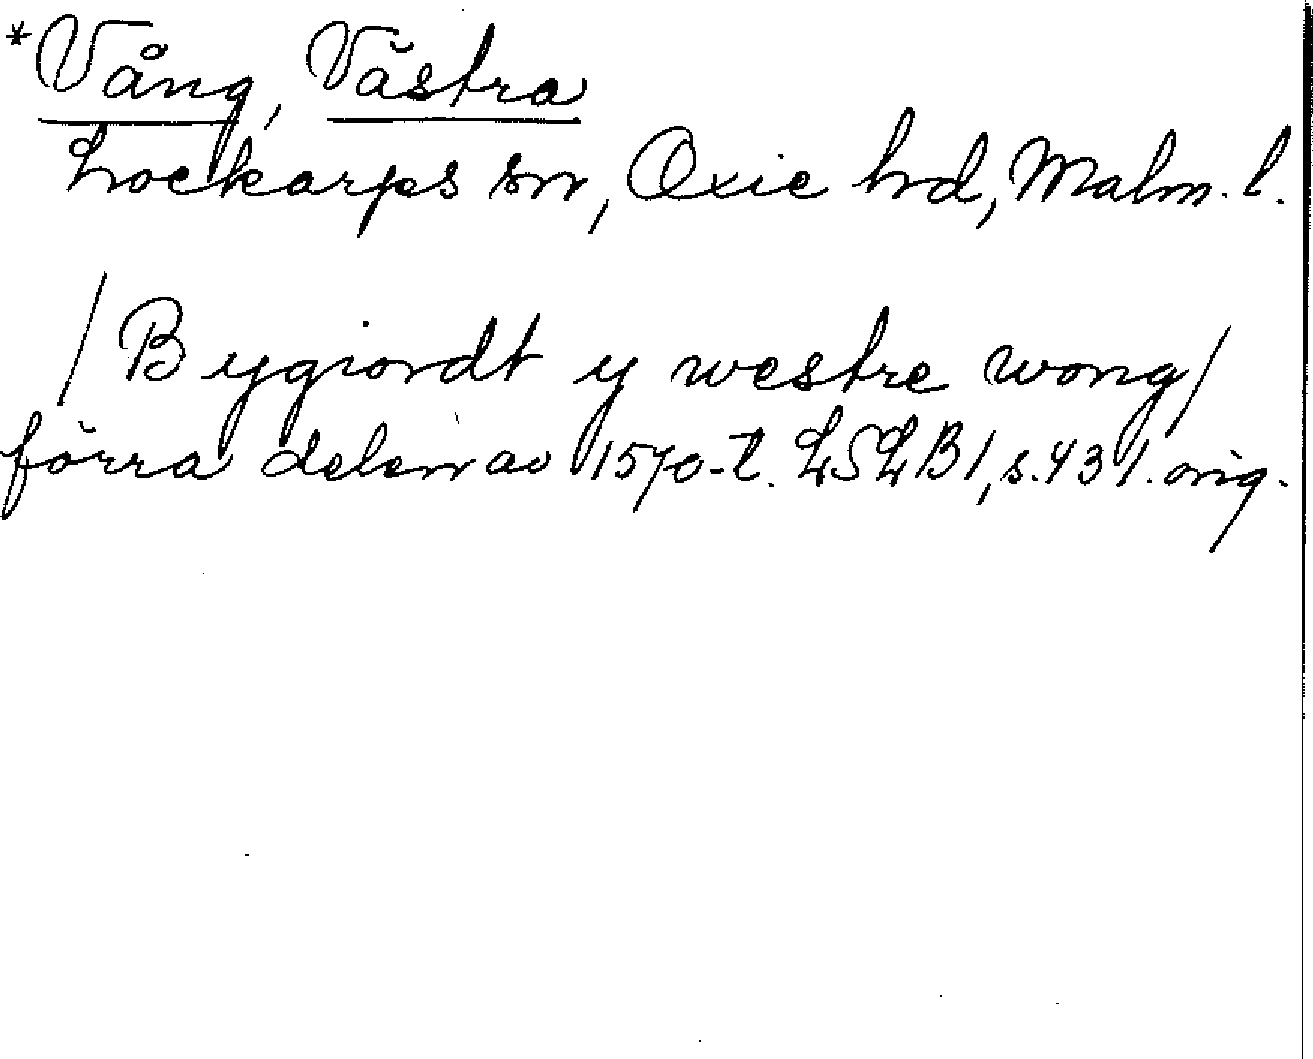 *Vång, Västra
Lockarps sn, Oxie hd, Malm. l.
/Bygiordt y westre wong/
förra delen av 1570-t. LSLB 1, s. 431. orig.